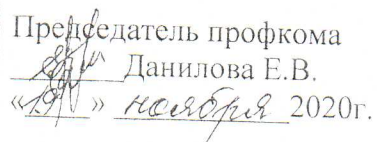 Председатель профкома
Данилова Е.В.
«19» ноября 2020г.